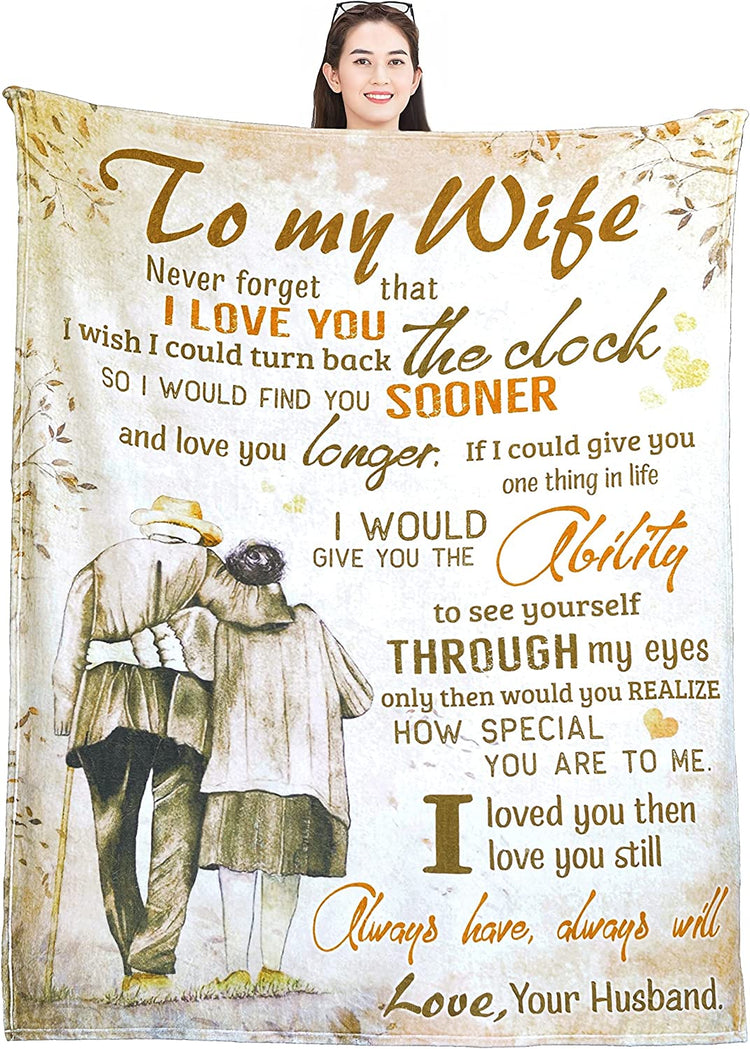 To my Wife
Never forget that
I LOVE YOU
I wish I could turn back the clock
SO I WOULD FIND YOU SOONER
and love you longer. If I could give you
one thing in life
I WOULD
GIVE YOU THE Ability
to see yourself
THROUGH my eyes
only then would you REALIZE
HOW SPECIAL
YOU ARE TO ME.
I loved you then
love you still
Always have, always will
Love, Your Husband.